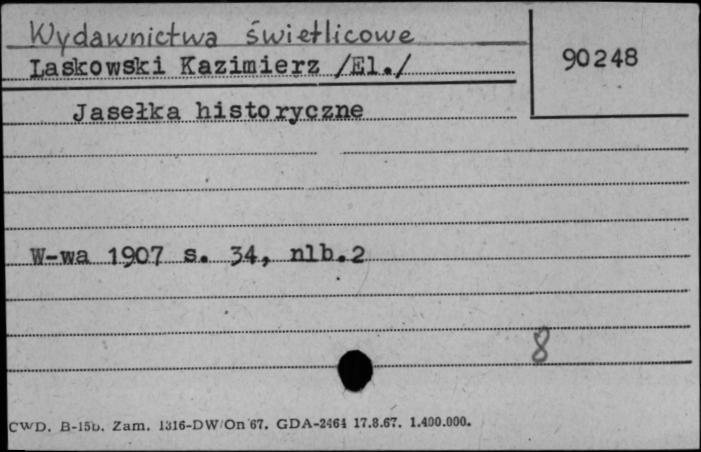 Wydawnictwa świetlicowe
90248
Laskowski Kazimierz /El./
Jasełka historyczne
W-wa 1907 s. 34, nlb.2
8
CWD. B-15b. Zam. 1316-DW/On/67. GDA-2464 17.8.67. 1.400.000.